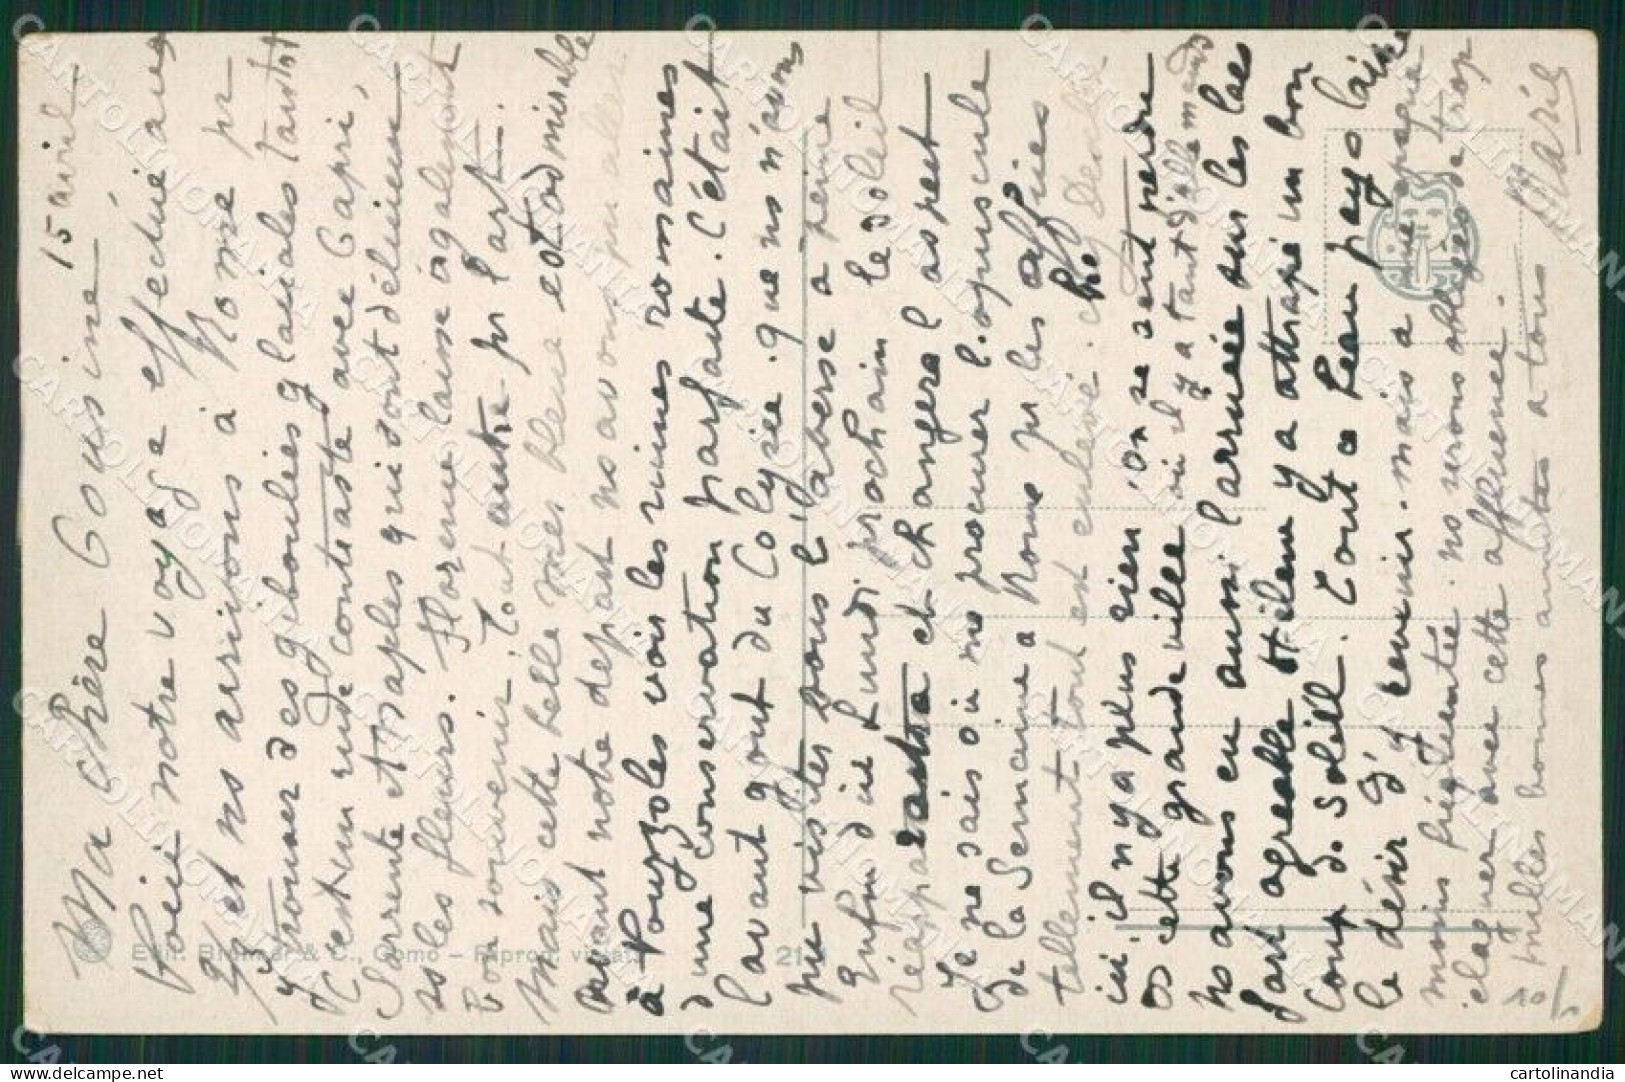 15 avril
Ma chère Cousine
Voici notre voyage effectué avec
et ns arrivons à Rome pr
trouver des giboulées glaciales tantôt
c'est un rude contraste avec Capri,
Sorrente et Naples qui sont délicieux
ss les fleurs. Florence laisse également
bon souvenir. Tout autre pr l'art.
Mais cette belle mer bleue est admirable
avant notre départ ns avons pu aller
à Pouzzoles voir les ruines romaines
d'une conservation parfaite. C'était
l'avant gout du Colysée. que ns n'avons
pu visiter sous l'averse à peine
Enfin d'ici Lundi prochain le soleil
réapparaitra et changera l'aspect
Je ne sais où me procurer l'opuscule
de la Semaine à Rome pr les
tellement tout est enlevé. chez
ici il n'y a plus rien. on se sent perdu
ds cette grande ville où il y a tant d'allemands
ns avons eu aussi l'arrivée sur les lacs
fort agréable Hélène y a attrapé un bon
coup de soleil. Tout ce beau pays laisse
le désir d'y revenir. mais à une époque
moins fréquentée. ns serons obligés de trop
élaguer avec cette affluence.
milles bonnes amitiés à tous
Marie
Edit. Brunner & C., Como – Riprod. vietata
21
10/
CARTOLINOMANIA
cartolinandia